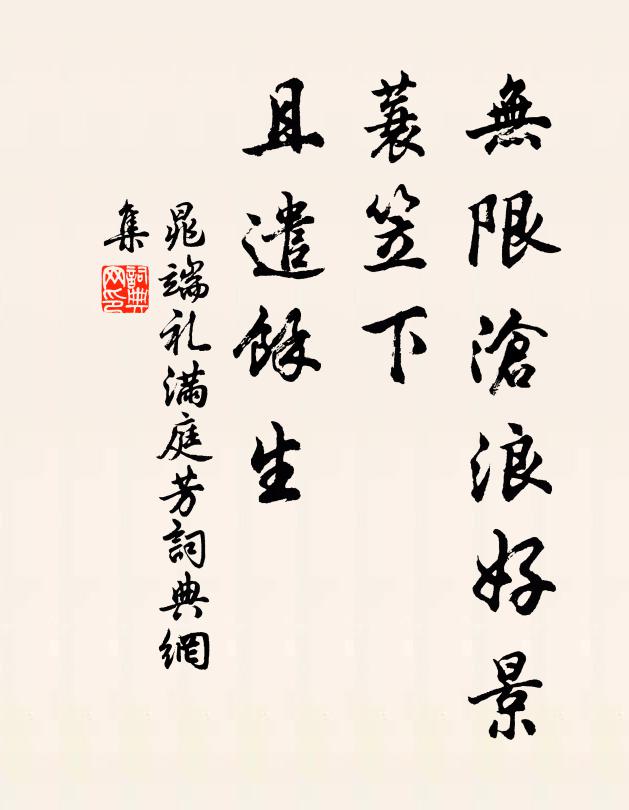 無限滄浪好景
蓑笠下
且遣餘生
晁端礼滿庭芳詞典網
集
詞典
网印